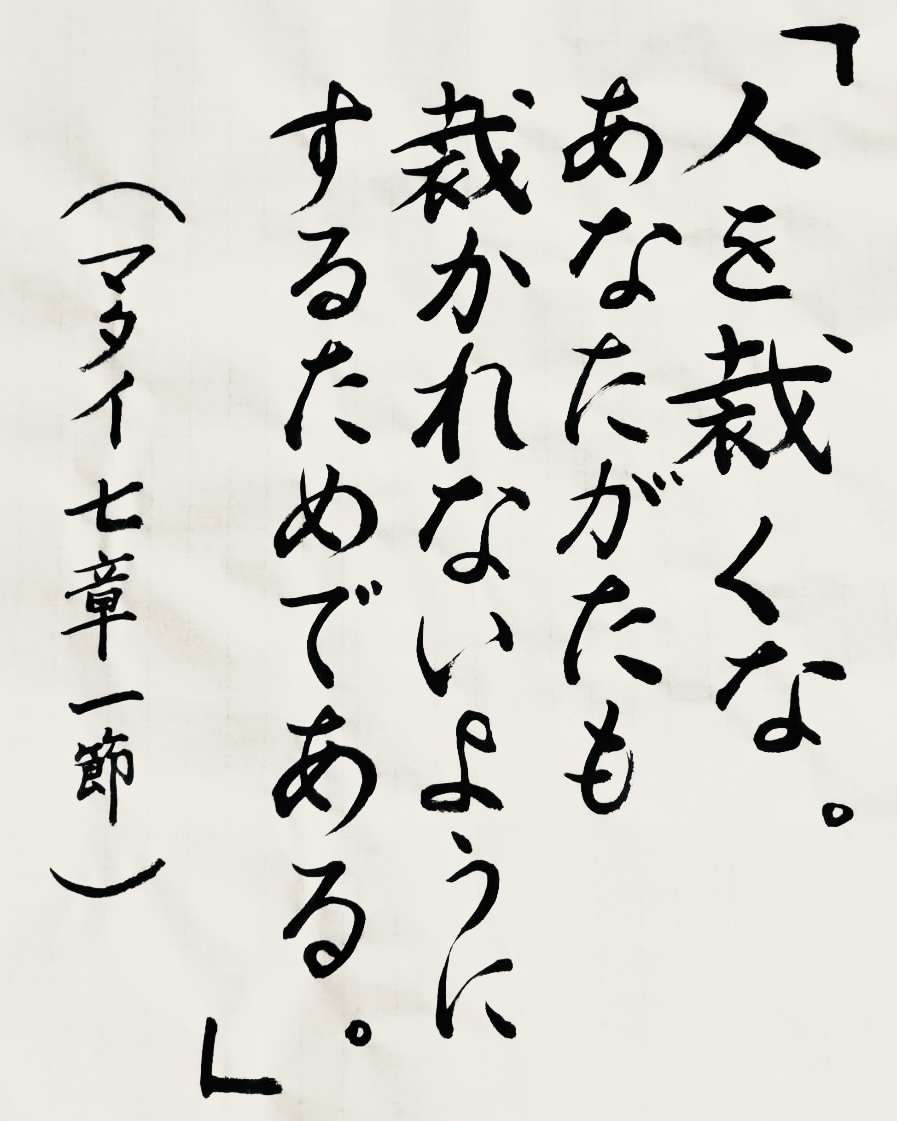 「人を裁くな。
あなたがたも
裁かれないように
するためである。」
(マタイ七章一節)